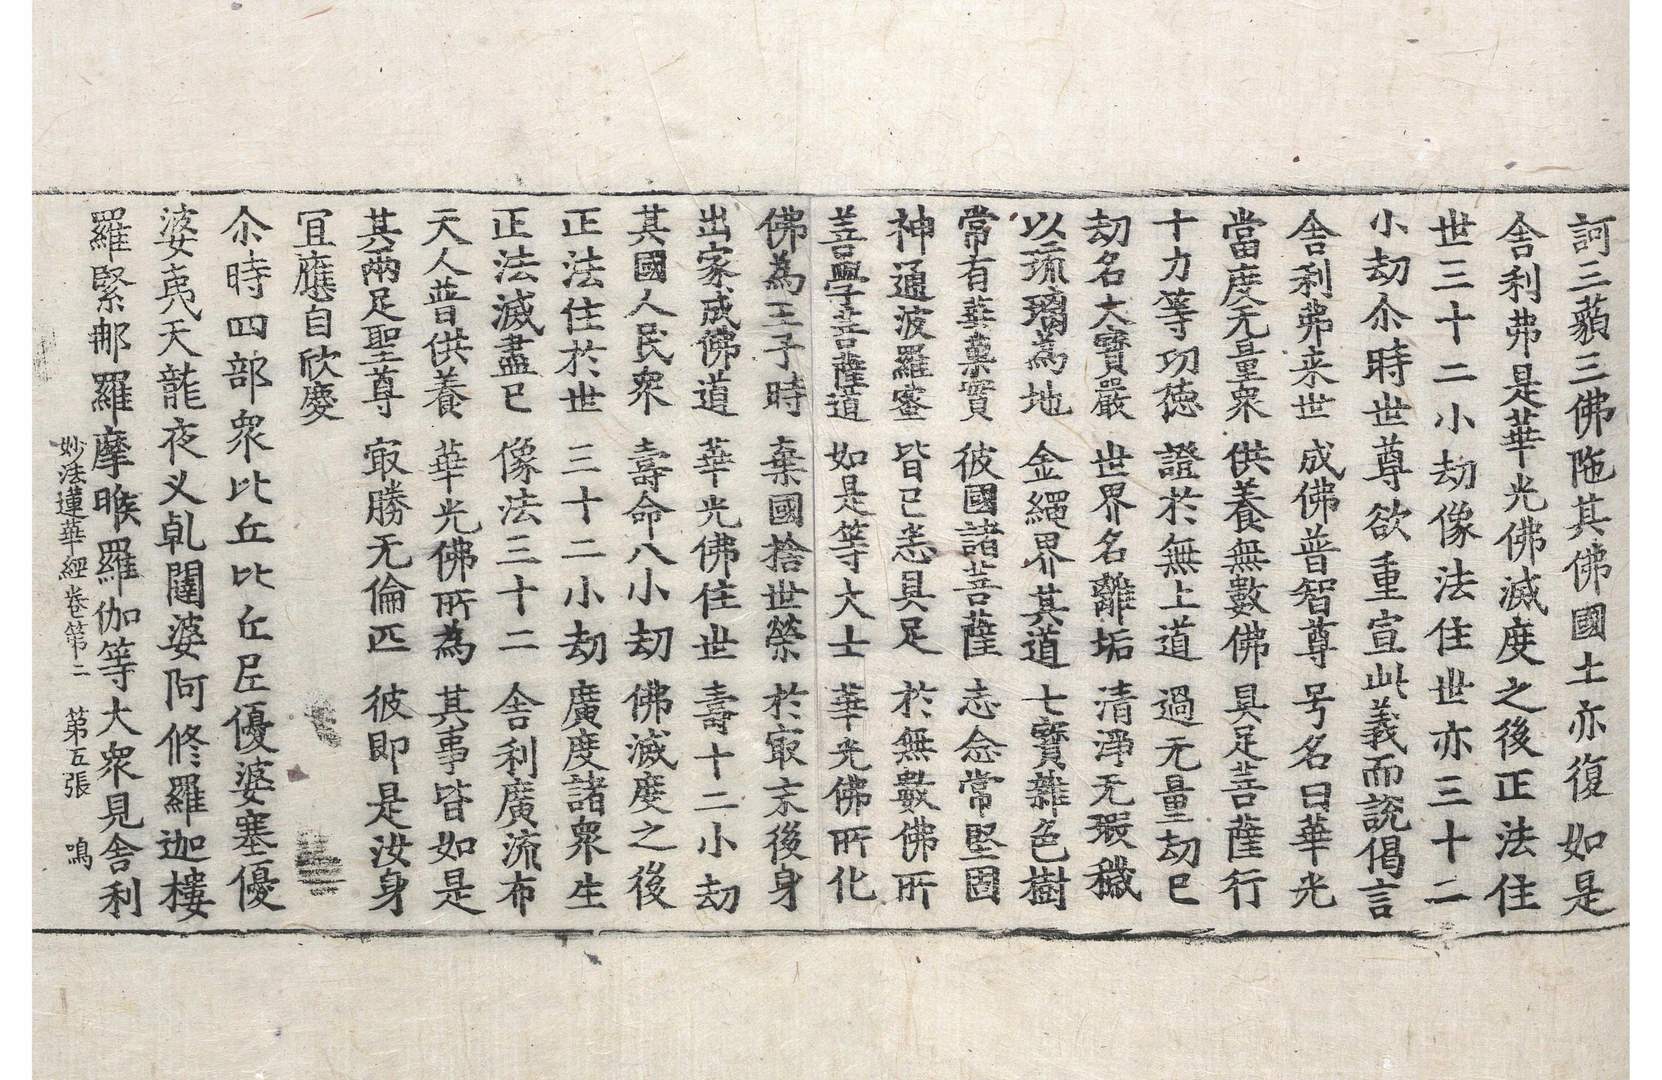 訶三藐三佛陁其佛國土亦復如是
舍利弗是華光佛滅度之後正法住
世三十二小劫像法住世亦三十二
小劫尒時世尊欲重宣此義而說偈言
舍利弗来世　成佛普智尊　号名曰華光
當度无量衆　供養無數佛　具足菩薩行
十力等功徳　證於無上道　過无量劫已
劫名大寶嚴　世界名離垢　清淨无瑕穢
以琉璃為地　金繩界其道　七寶雜色樹
常有華菓實　彼國諸菩薩　志念常堅固
神通波羅蜜　皆已悉具足　於無數佛所
善學菩薩道　如是等大士　華光佛所化
佛為王子時　棄國捨世榮　於㝡末後身
出家成佛道　華光佛住世　壽十二小劫
其國人民衆　壽命八小劫　佛滅度之後
正法住於世　三十二小劫　廣度諸衆生
正法滅盡已　像法三十二　舍利廣流布
天人普供養　華光佛所為　其事皆如是
其兩足聖尊　㝡勝无倫匹　彼即是汝身
冝應自欣慶
尒時四部衆比丘比丘尼優婆塞優
婆夷天龍夜叉乹闥婆阿修羅迦樓
羅緊那羅摩睺羅伽等大衆見舍利
妙法蓮華經卷第二　第五張　鳴